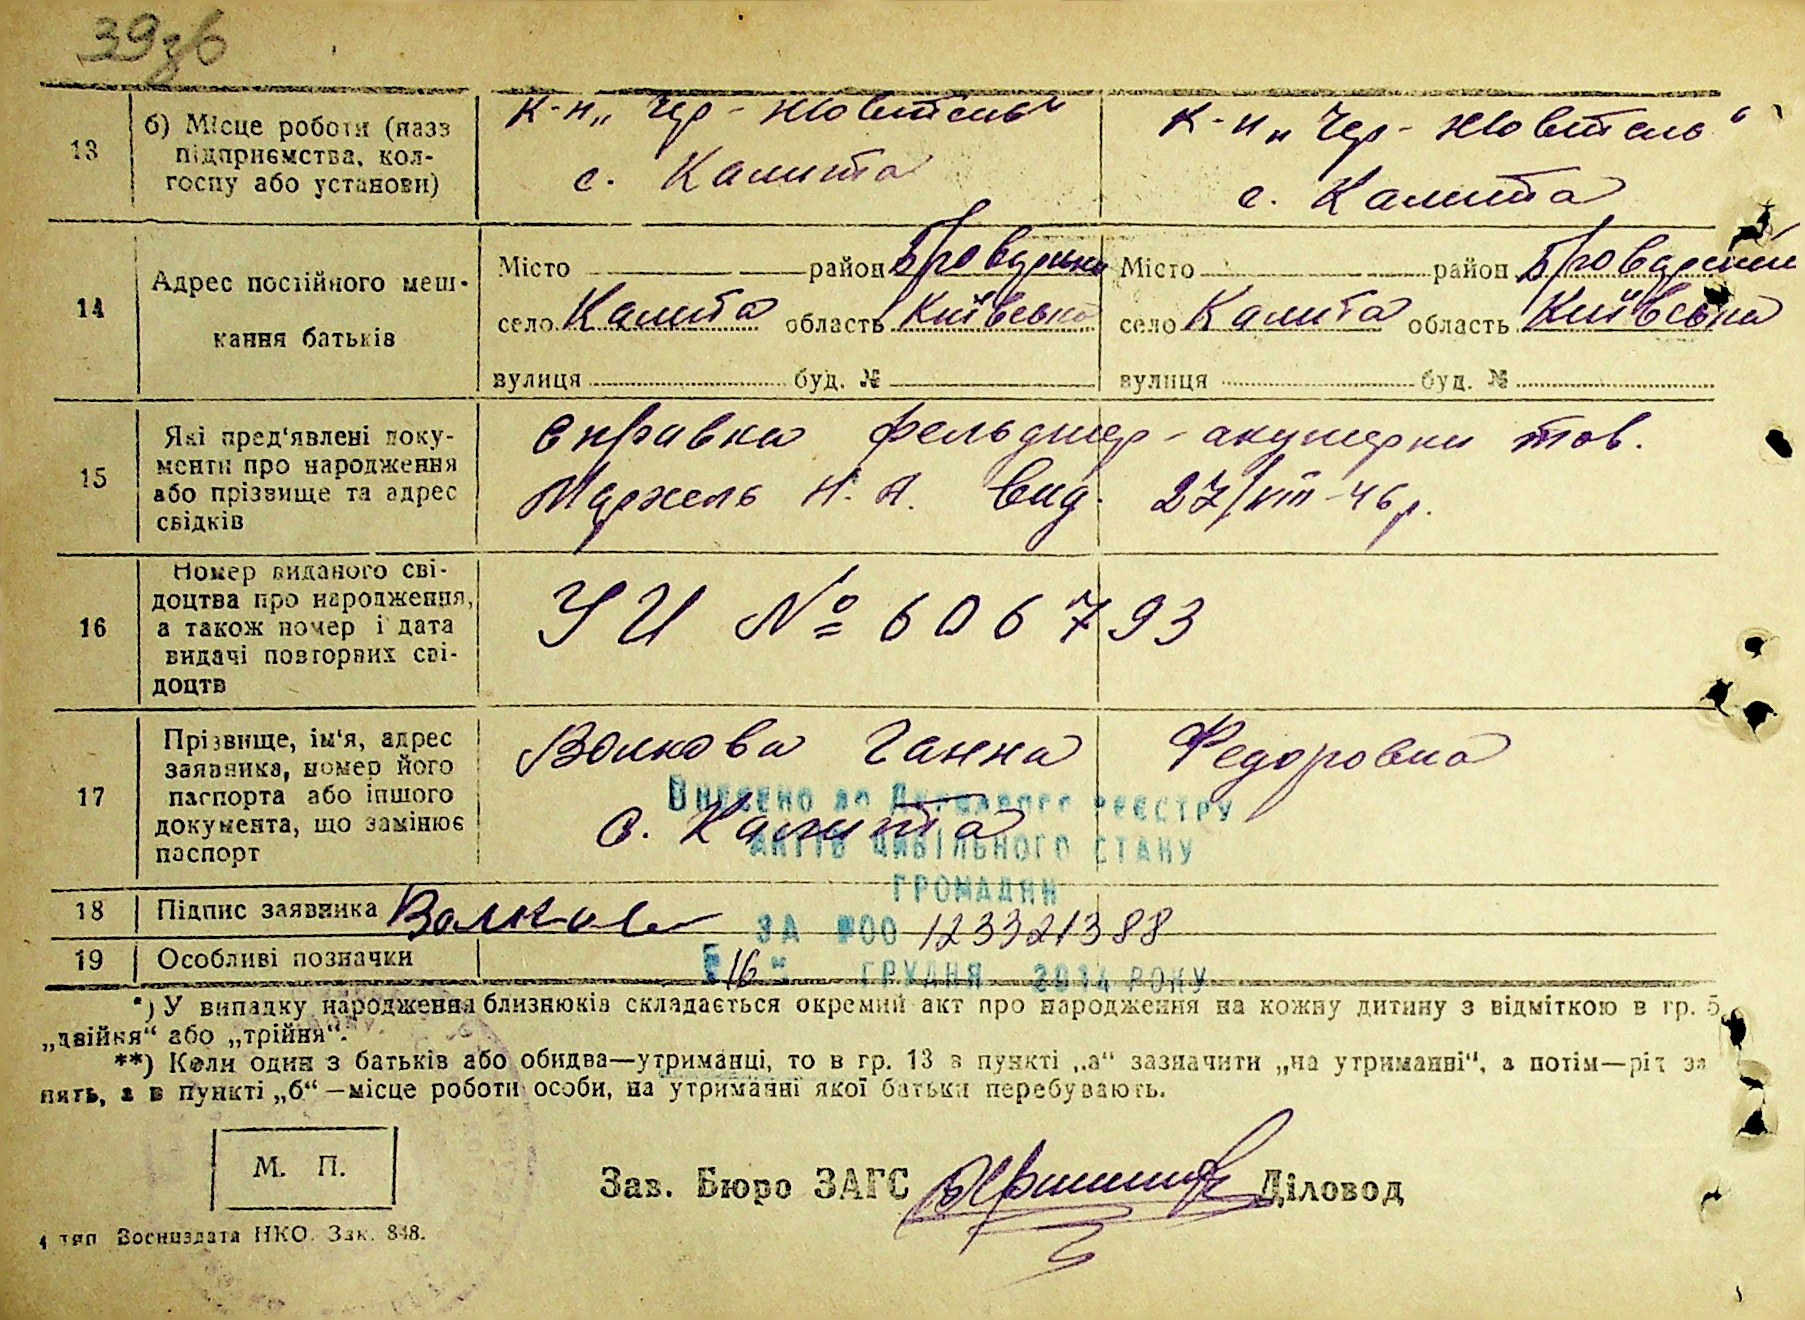 39зв
13
б) Місце роботи (назв
підприємства, кол-
госпу або установи)
к-п „Чер-жовтень“
с. Калита
к-п „Чер-жовтень“
с. Калита
14
Адрес постійного меш-
кання батьків
Місто район Броварськи
село Калита область Київська
вулиця буд. №
Місто район Броварський
село Калита область Київська
вулиця буд. №
15
Які пред'явлені доку-
менти про народження
або прізвище та адрес
свідків
Справка фельдшер-акушерки тов.
Н. А. вид. 27/VIII-46р.
16
Номер виданого сві-
доцтва про народження,
а також номер і дата
видачі повторних сві-
доцтв
УИ № 606793
17
Прізвище, ім'я, адрес
заявника, номер його
паспорта або іншого
документа, що замінює
паспорт
Волкова Ганна Федоровна
с. Калита
Внесено до Державного реєстру
актів цивільного стану
громадян
за №00 123321388
18
Підпис заявника
Волков
19
Особливі позначки
"16" грудня 2014 року
*) У випадку народження близнюків складається окремий акт про народження на кожну дитину з відміткою в гр. 5
„двійня“ або „трійня“.
**) Коли один з батьків або обидва—утриманці, то в гр. 13 в пункті „а“ зазначити „на утриманні“, а потім—рід за
нять, а в пункті „б“—місце роботи особи, на утриманні якої батьки перебувають.
М. П.
Зав. Бюро ЗАГС Діловод
4 тип Воениздата НКО. Зак. 848.